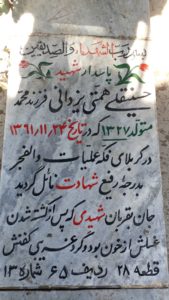 بسم رب الشهداء والصدیقین
پاسدار شهید
حسینقلی همتی یزدانی فرزند محمد
متولد ۱۳۲۷ که در تاریخ ۱۳۶۱,۱۱,۲۳
در کربلای فکه عملیات والفجر
بدرجه رفیع شهادت نائل گردید
جان بقربان شهیدی که پس از کشته شدن
غسلش از خون بود و گرد غریبی کفنش
قطعه ۲۸ ردیف ۶۵ شماره ۱۳